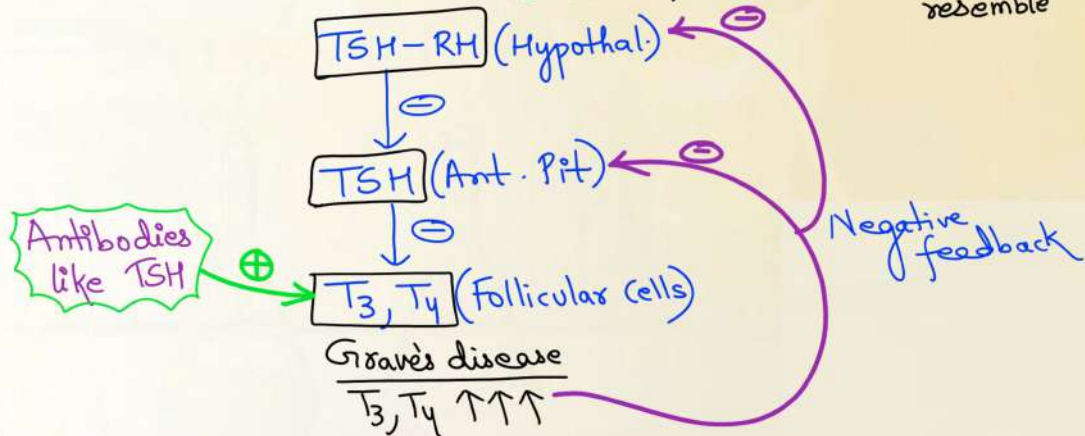 resemble
TSH-RH (Hypothal.) ⊖
⊖
TSH (Ant. Pit) ⊖
⊖
Antibodies
like TSH
⊕
T3, T4 (Follicular cells)
Negative
feedback
Grave's disease
T3, T4 ↑↑↑